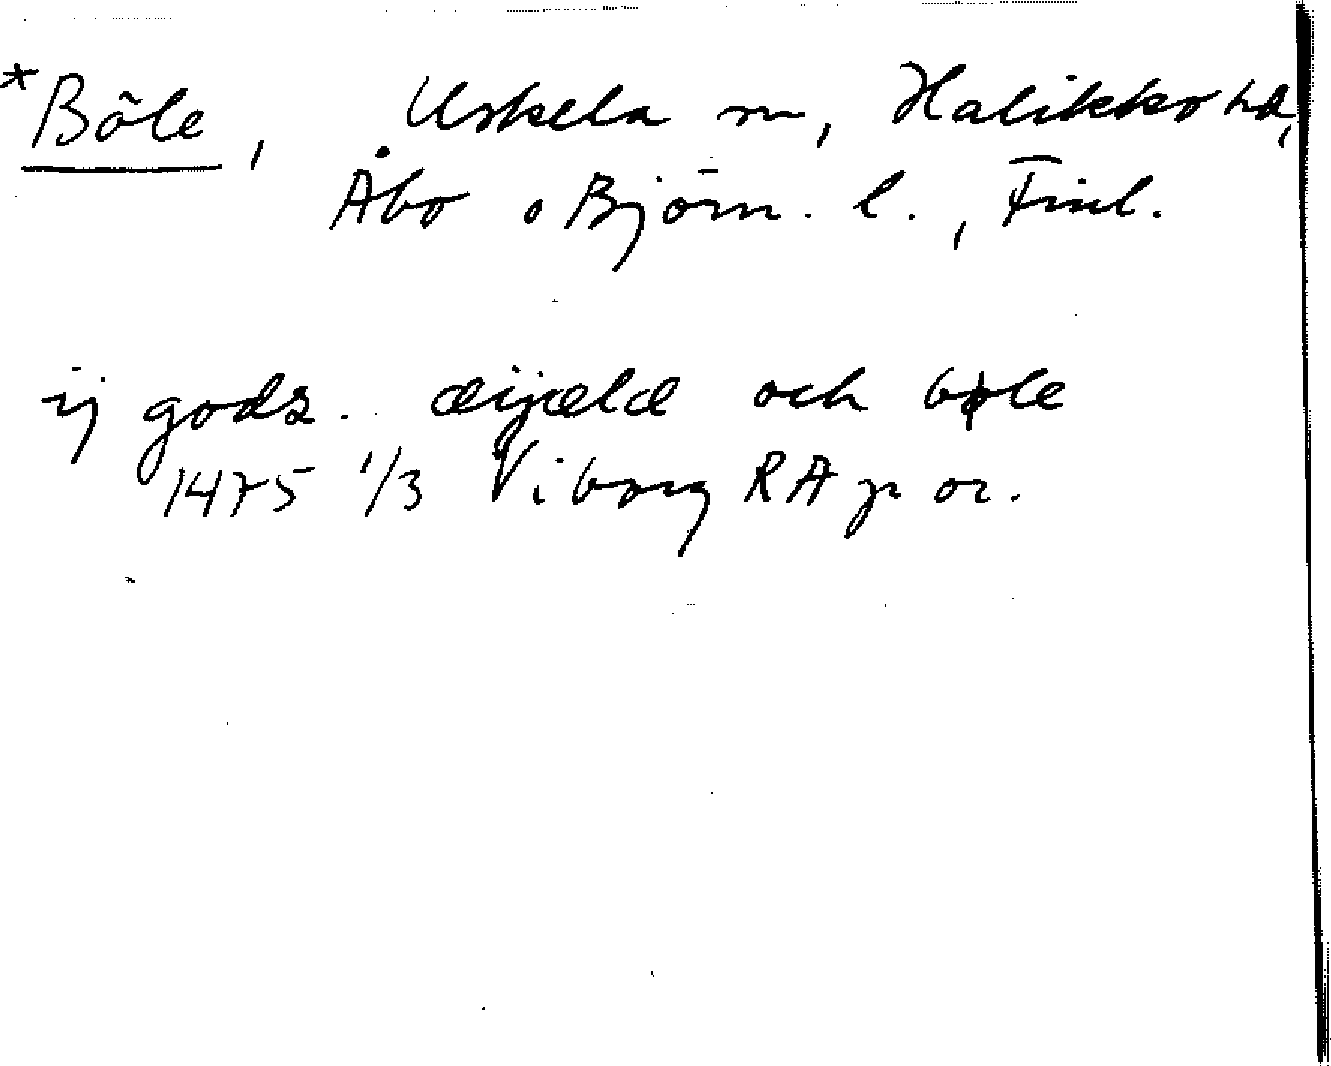 *Böle, Uskela sn, Halikko hd,
Åbo o Björn. l., Finl.
ij gods. æijælæ och bøle
1475 1/3 Viborg RA p or.